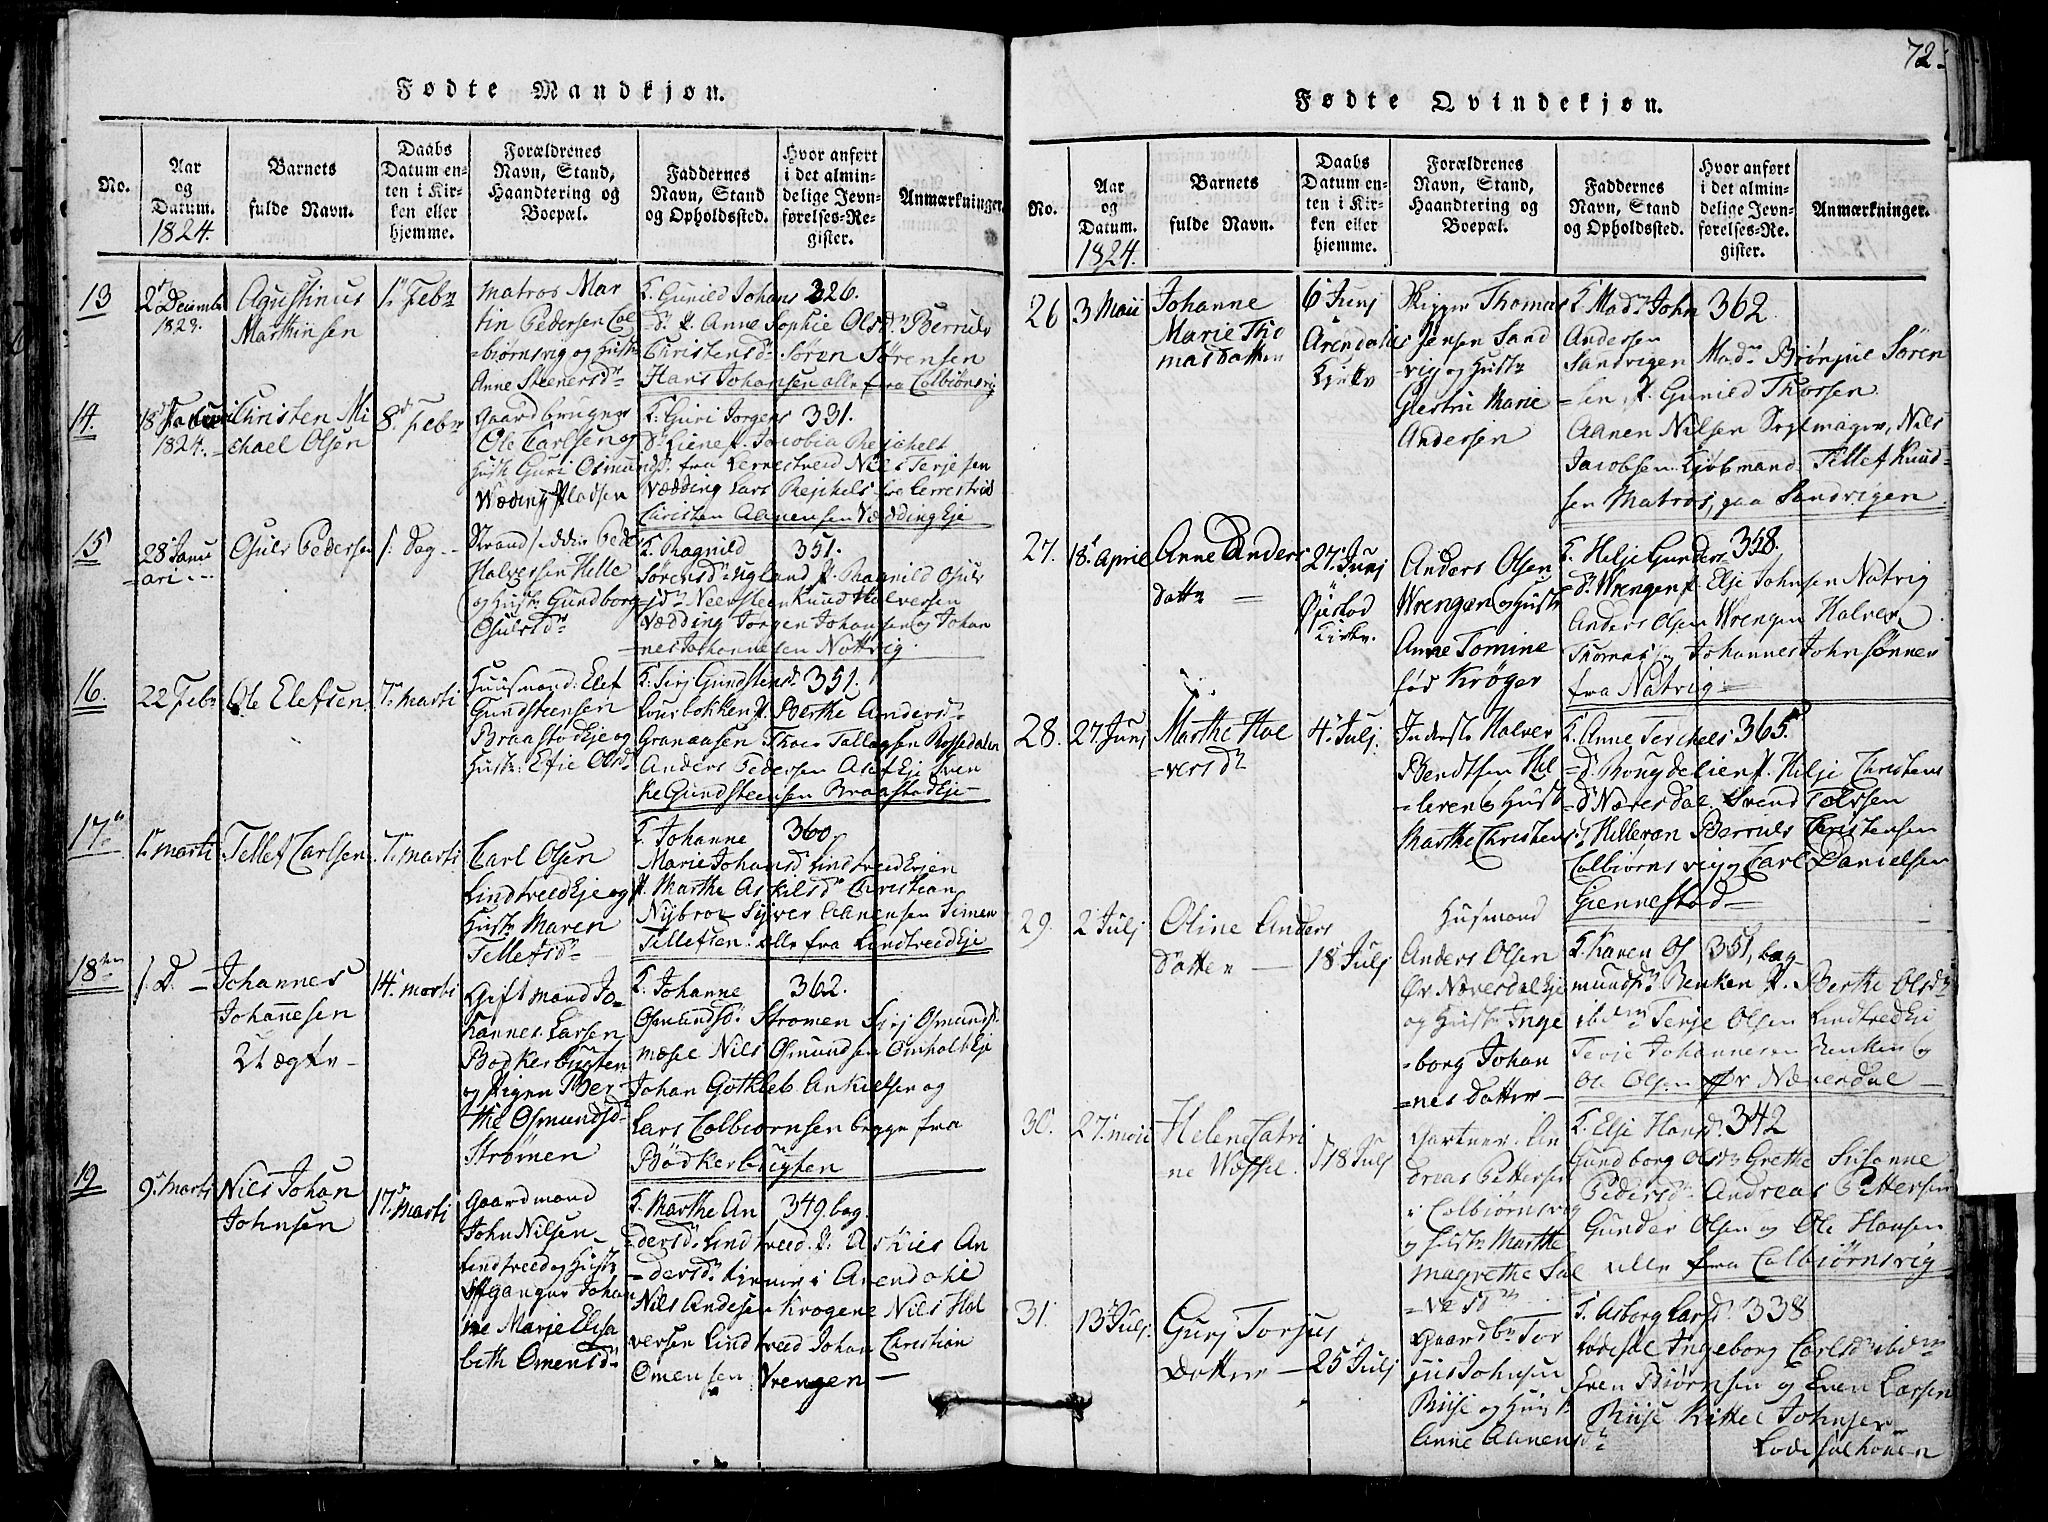 Fødte Mandkjøn.
No.
Aar
og
Datum.
1824.
Barnets
fulde Navn.
Daabs
Datum en-
ten i Kir-
ken eller
hjemme.
Forældrenes
Navn, Stand,
Haandtering og
Boepæl.
Faddernes
Navn, Stand
og Opholdssted.
Hvor anført
i det almin-
delige Jevn-
førelses-Re-
gister.
Anmærkninger.
13
2 Decembr
1823.
Agustinus
Martinsen
1. Febr
Matros Mar
tin Pedersen Col
-biørnsvig og Hustr
Anne Steenersdr
F. Gunild Johans 326.
dr. P. Anne Sophie Olsdr Berruls
Christensdr Søren Sørensen
Hans Johansen alle fra Colbiønsvig
14.
18 Januari
1824.
Christen Mi
-chael Olsen
8. Febr
Gaardbruger
Ole Carlsen og
Hustr Guri Osmunds
Wæding Pladsen
F. Guri Jorgens 331.
dr. Liene P. Jacobia Rejehelt
fra Lerrestved Niels Terjesen
Vædding Lars Rejehels fra Lerrestved
Christen Aanensen Vædding Eje
15
28 Janu
-ari
Osuls Pedersen
s. Dag
Strandsidder Peder
Halversen Helle
og Hustr Gundborg
Osulsdr
F. Ragnild 351.
Sørensdr Ugland P. Ragnild Osuls
dr Neersteen Knud Halversen
Vædding Jorgen Johansen og Johan
nes Johannesen Nottvig
16.
22 Febr
Ole Elefsen
7. Marti
Huusmand: Elef
Gundsteensen
Braastod Eje og
Hustr: Efie Olsdr
F. Sirj Gundstensdr 351.
P. Berthe Andersdr
Granaasen Thor Tallagsen Rossedalen
Anders Pedersen Asef Eje Sven
ke Gundsteensen Braastod Eje
17
1. Marti
Tellef Carlsen
7. Marti
Carl Olsen
Lindtveed Eje og
Hustr Maren
Tellefsdr
F. Johanne 360.
Marie Johansdr Lindtveed Ejen
P. Marthe Askilsdr Christian
Nybroe Syver Aanensen Simen
Tellefsen alle fra Lindtveed Eje
18
s. D.
Johannes
Johannesen
Uægte
14. Marti
Gift mand Jo-
hannes Larsen
Bødkerbugten
og Pigen Ber
the Osmundsdr
Strømen
F. Johanne 362.
Osmundsdr Strømen Sirj Osmundsdr
Nils Osmundsen Omholt Eje
Johan Gothleb Ankielsen og
Lars Colbiørnsen begge fra
Bødkerbugten
19
9. Marti
Nils Johan
Johnsen
17. Marti
Gaardmand
John Nilsen
Lindtveed og Hustr
Johan
ne Marje Elisa
beth Omensdr
F. Marthe An 349. bag.
dersdr Lindtveed. P. Askies An
-dersdr tjener i Arendahl
Nils Andesen Krogene Nils Hal
versen Lindtveed Johan Christian
Omensen Vrengen
72.
Fødte Qvindekjøn.
No.
Aar
og
Datum.
1824.
Barnets
fulde Navn.
Daabs
Datum en-
ten i Kir-
ken eller
hjemme.
Forældrenes
Navn, Stand,
Haandtering og
Boepæl.
Faddernes
Navn, Stand
og Opholdssted.
Hvor anført
i det almin-
delige Jevn-
førelses-Re-
gister.
Anmærkninger.
26
3 Maii
Johanne
Marie Tho
masdatter
6 Junj
Arendahls
Kirke
Skipper Thomas
Jensen Sand
vig og Hustr
Giertru Marie
Andersen
F. Mad. John 362
Andersen
Sandvigen Mad. Søren
sen P. Gunild Thorsen.
Aanen Nilsen Sejlmager, Nils
Jacobsen Kjøbmand Tellef Knud-
sen Matros, paa Sandvigen
27.
18. April
Anne Anders
datter
27. Junj
Øjestad
Kirke.
Anders Olsen
Wrengen og Hustr
Anne Tomine
fød Krøger
F. Helje Gunders 358.
dr Wrengen P. Elje Johnsen Natvig
Anders Olsen Wrengen Halver
Thomas og Johannes Johnsønner
fra Natvig
28.
27. Junj
Marthe Hal
-versdr
4. Julj
Inderste Halver
Bendtsen Hel
-leren og Hustr
Marthe Christens
dr
F. Anne Terchels 365.
dr. P. Helje Christens
dr Næversdal Svend Tolfsen
Helleren Berruls Christensen
Colbiørnsvig og Carl Danielsen
Giennestad
29.
2 Julj
Oline Anders
datter
18 Julj
Husmand
Anders Olsen
Ør Næversdal Eje
og Hustr Inge
-borg Johan
-nesdatter
F. Karen Os 351, bag
mundsdr Renken P. Berthe Olsdr
ibm Terje Olsen Lindtved Eje
Terje Johannesen Renken og
Ole Olsen Ør Næversdal
30.
27. Maii
Helene Catri
ne Wessel.
18 Julj
Gartner An
dreas Pettersen
i Colbiørnsvig
og Hustr Marthe
Magrethe Sal
-vesdr
F. Elje Hansdr. 342
Gundborg Olsdr Grethe Susanne
Pedersdr Andreas Pettersen
Gunder Olsen og Ole Hansen
alle fra Colbiørnsvig
31.
13 Julj
Gurj Torjus
Datter
25 Julj
Gaardbr Tor
jus Johnsen
Riise og Hustr
Anne Aanensdr
F. Asborg Larsdr. 338
Lodesøl Ingeborg Carlsdr ibm
Even Biørnsen og Even Larsen
Riise Kittel Johnsen
Lodesølhouen